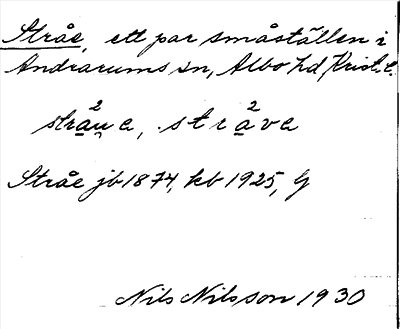 Stråe, ett par småställen i
Andrarums sn, Albo hd, Krist. l.
stra̲²u̯a, stra̲²va
Stråe jb 1874, kb 1925, G
Nils Nilsson 1930